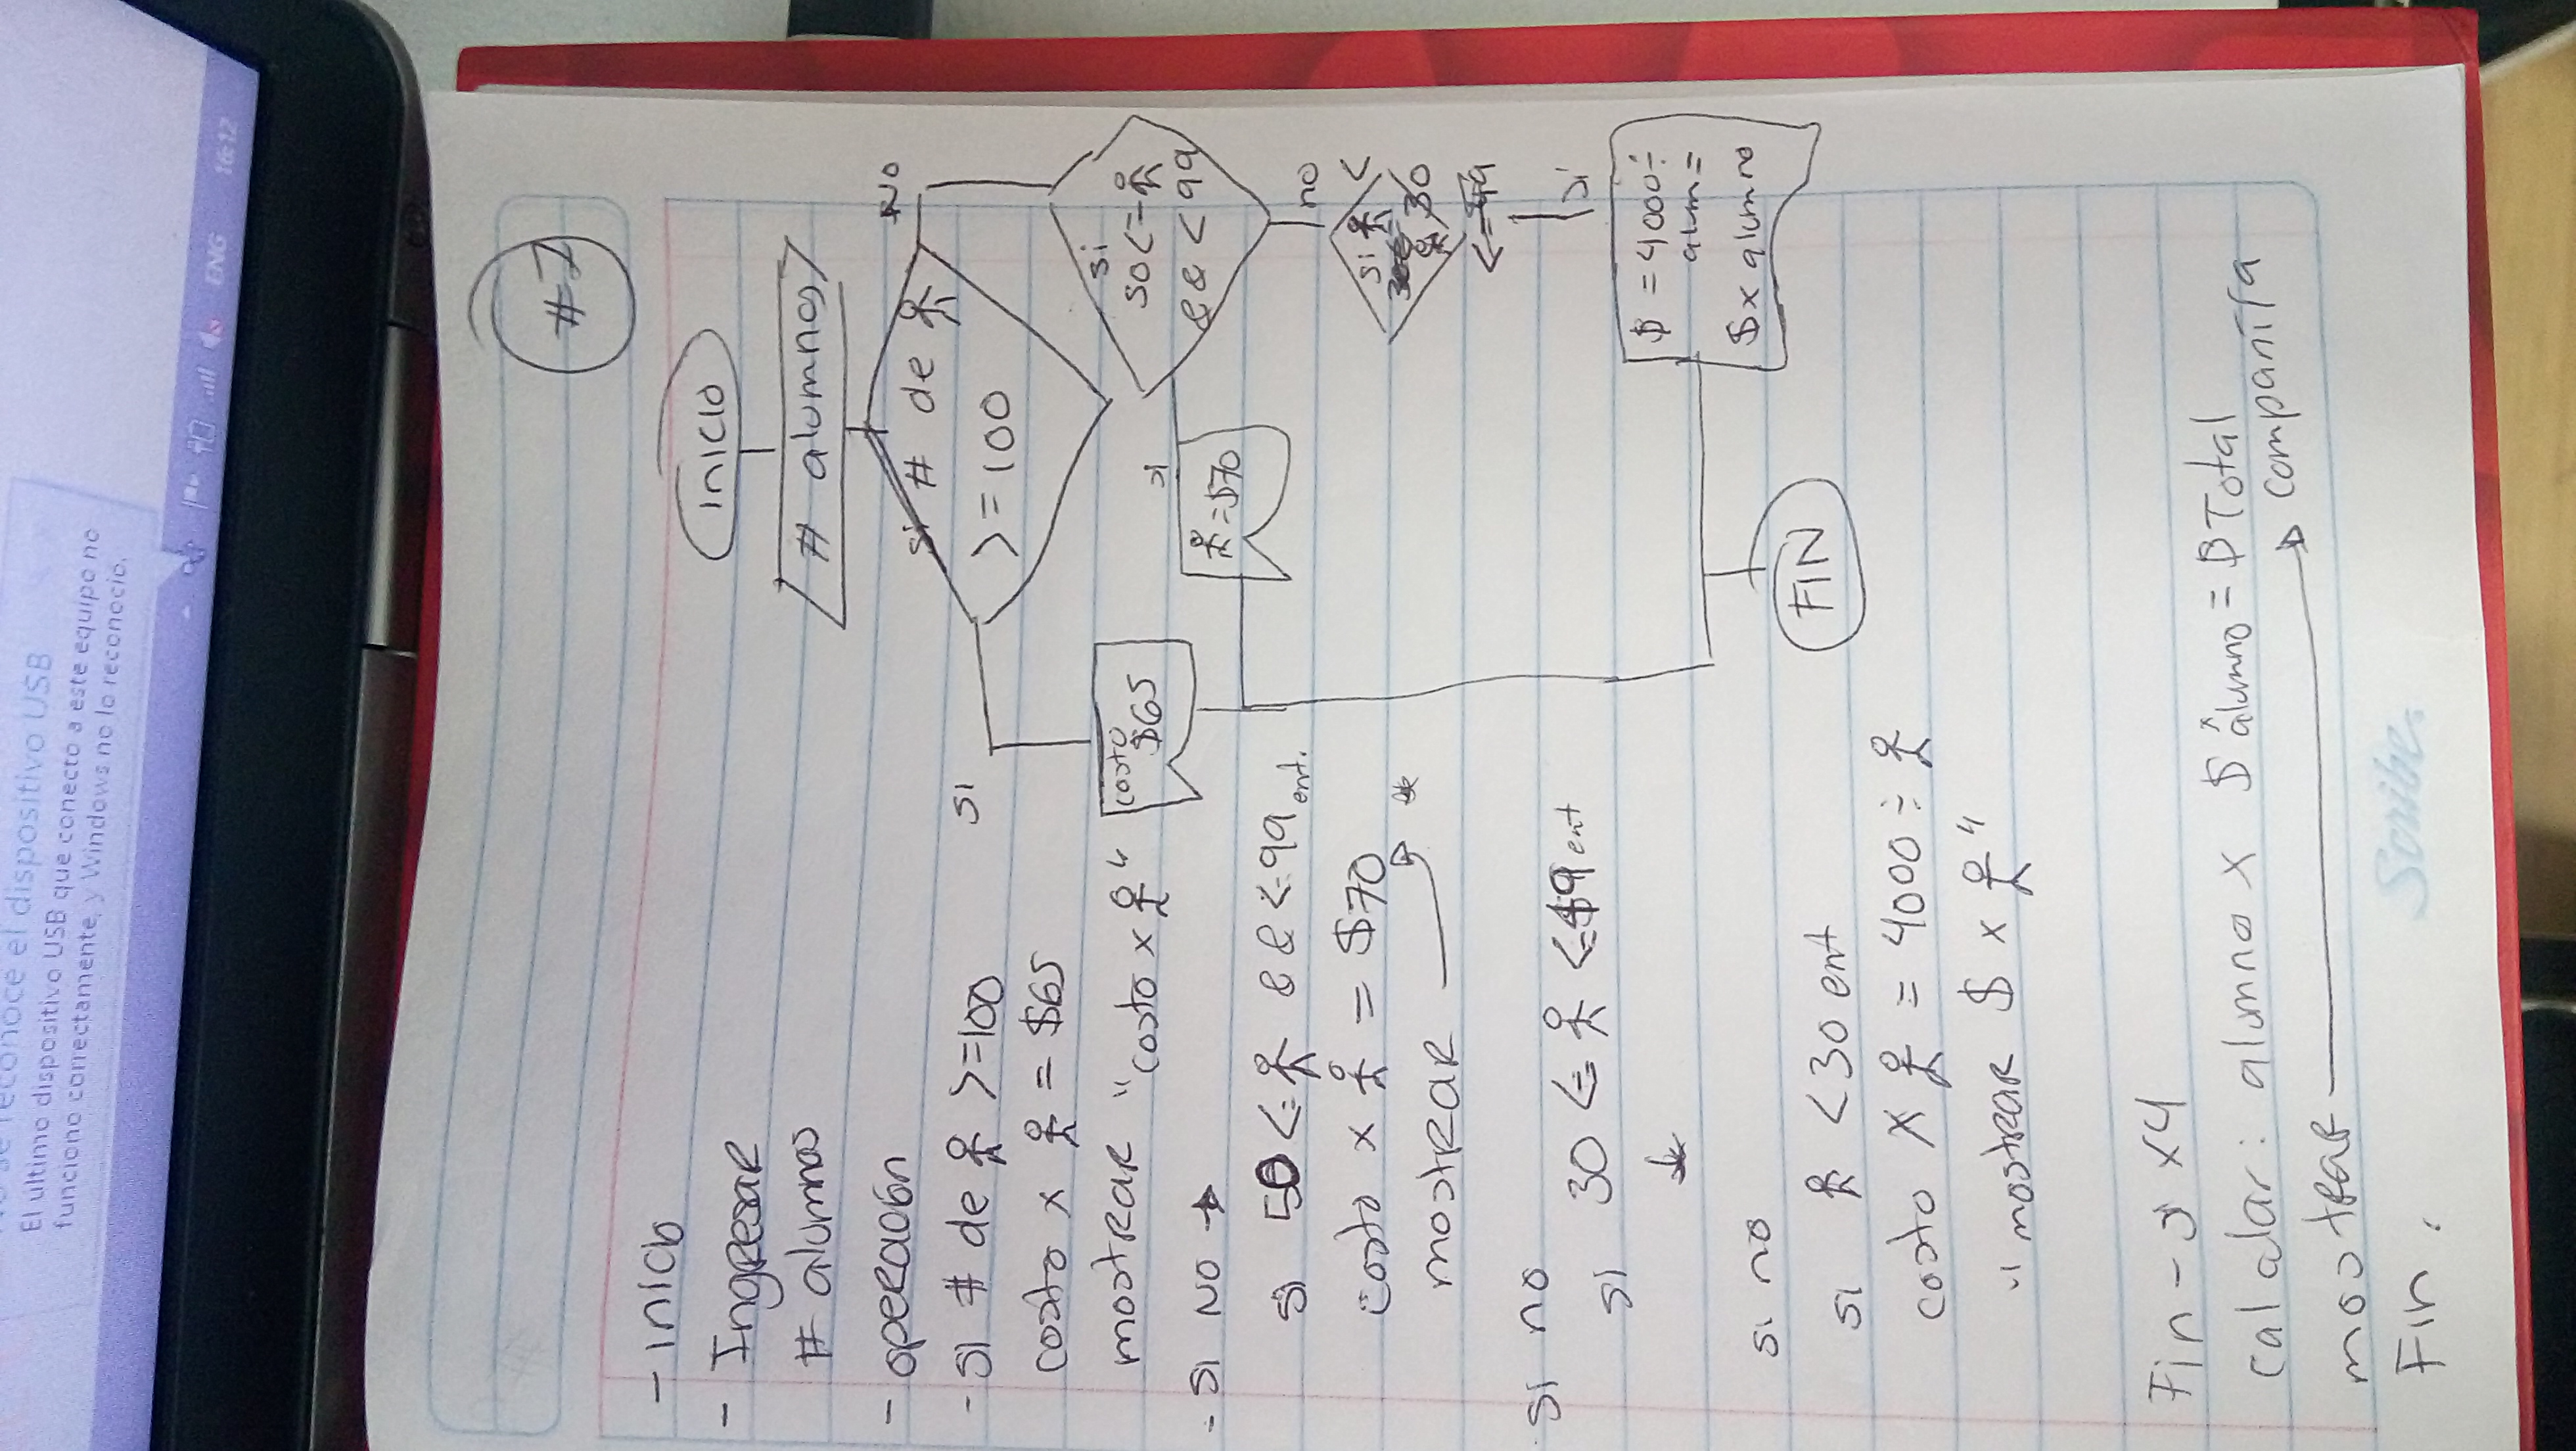 No se reconoce el dispositivo USB
El último dispositivo USB que conectó a este equipo no
funcionó correctamente, y Windows no lo reconoció.
ENG 16:12
- inicio
- Ingresar
# alumnos
- operación
- si # de >=100
costo x = $65
mostrar "costo x "
- si NO →
si 50 <= && <= 99 ent.
costo x = $70
mostrar
si no
si 30 <= <= 49 ent
si no
si < 30 ent
costo x = 4000 ÷
"mostrar $ x "
Fin - si x4
calcular: alumno x $ alumno = $ Total
compañía
mostrar
Fin.
inicio
# alumnos
si # de
>= 100
si
NO
costo
$65
si
50 <=
&& < 99
si
= $70
no
si <
30
<= 49
si
$ = 4000 ÷
alum =
$ x alumno
FIN
Scribe.